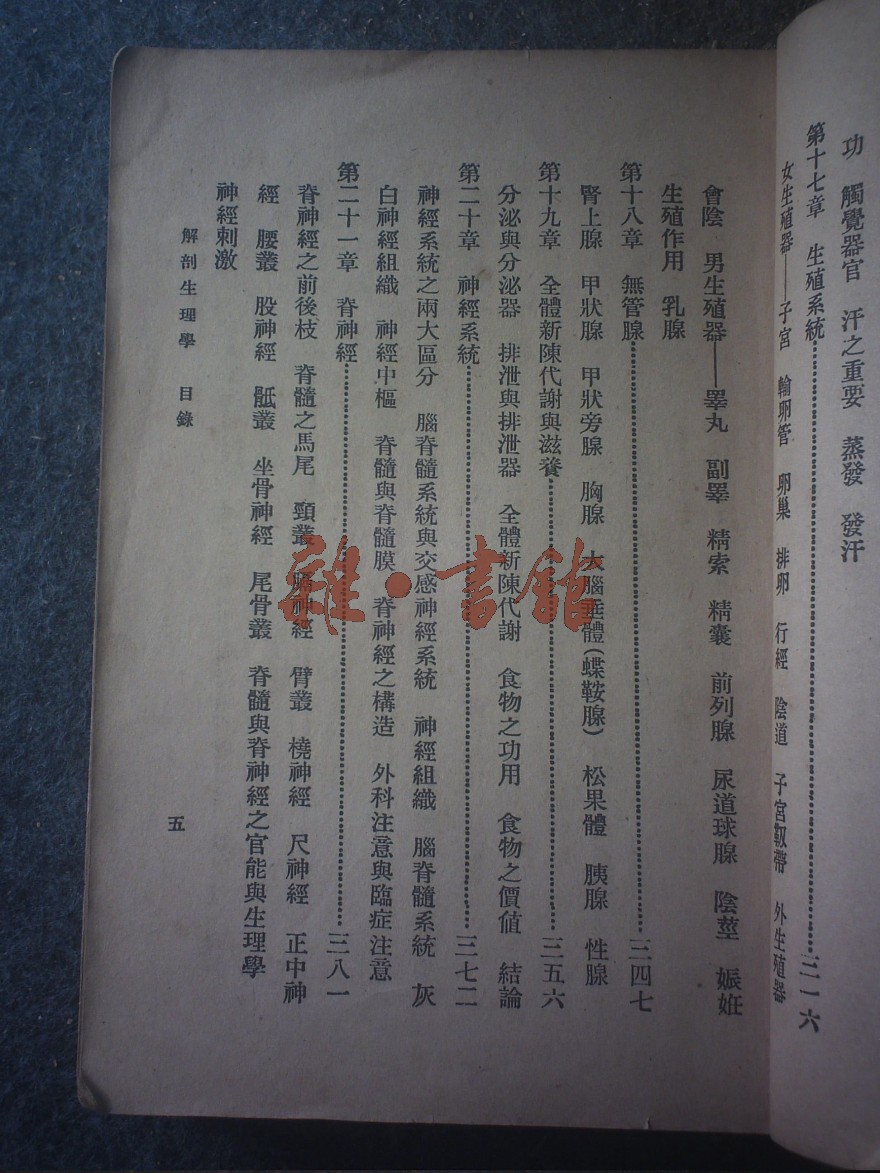 功　觸覺器官　汗之重要　蒸發　發汗
第十七章　生殖系統……三一六
女生殖器——子宮　輸卵管　卵巢　排卵　行經　陰道　子宮靱帶　外生殖器
會陰　男生殖器——睪丸　副睪　精索　精囊　前列腺　尿道球腺　陰莖　娠妊
生殖作用　乳腺
第十八章　無管腺……三四七
腎上腺　甲狀腺　甲狀旁腺　胸腺　大腦垂體(蝶鞍腺)　松果體　胰腺　性腺
第十九章　全體新陳代謝與滋養……三五六
分泌與分泌器　排泄與排泄器　全體新陳代謝　食物之功用　食物之價値　結論
第二十章　神經系統……三七二
神經系統之兩大區分　腦脊髓系統與交感神經系統　神經組織　腦脊髓系統　灰
白神經組織　神經中樞　脊髓與脊髓膜　脊神經之構造　外科注意與臨症注意
第二十一章　脊神經……三八一
脊神經之前後枝　脊髓之馬尾　頸叢　膈神經　臂叢　橈神經　尺神經　正中神
經　腰叢　股神經　骶叢　坐骨神經　尾骨叢　脊髓與脊神經之官能與生理學
神經刺激
解剖生理學　目錄
五
雜·書館